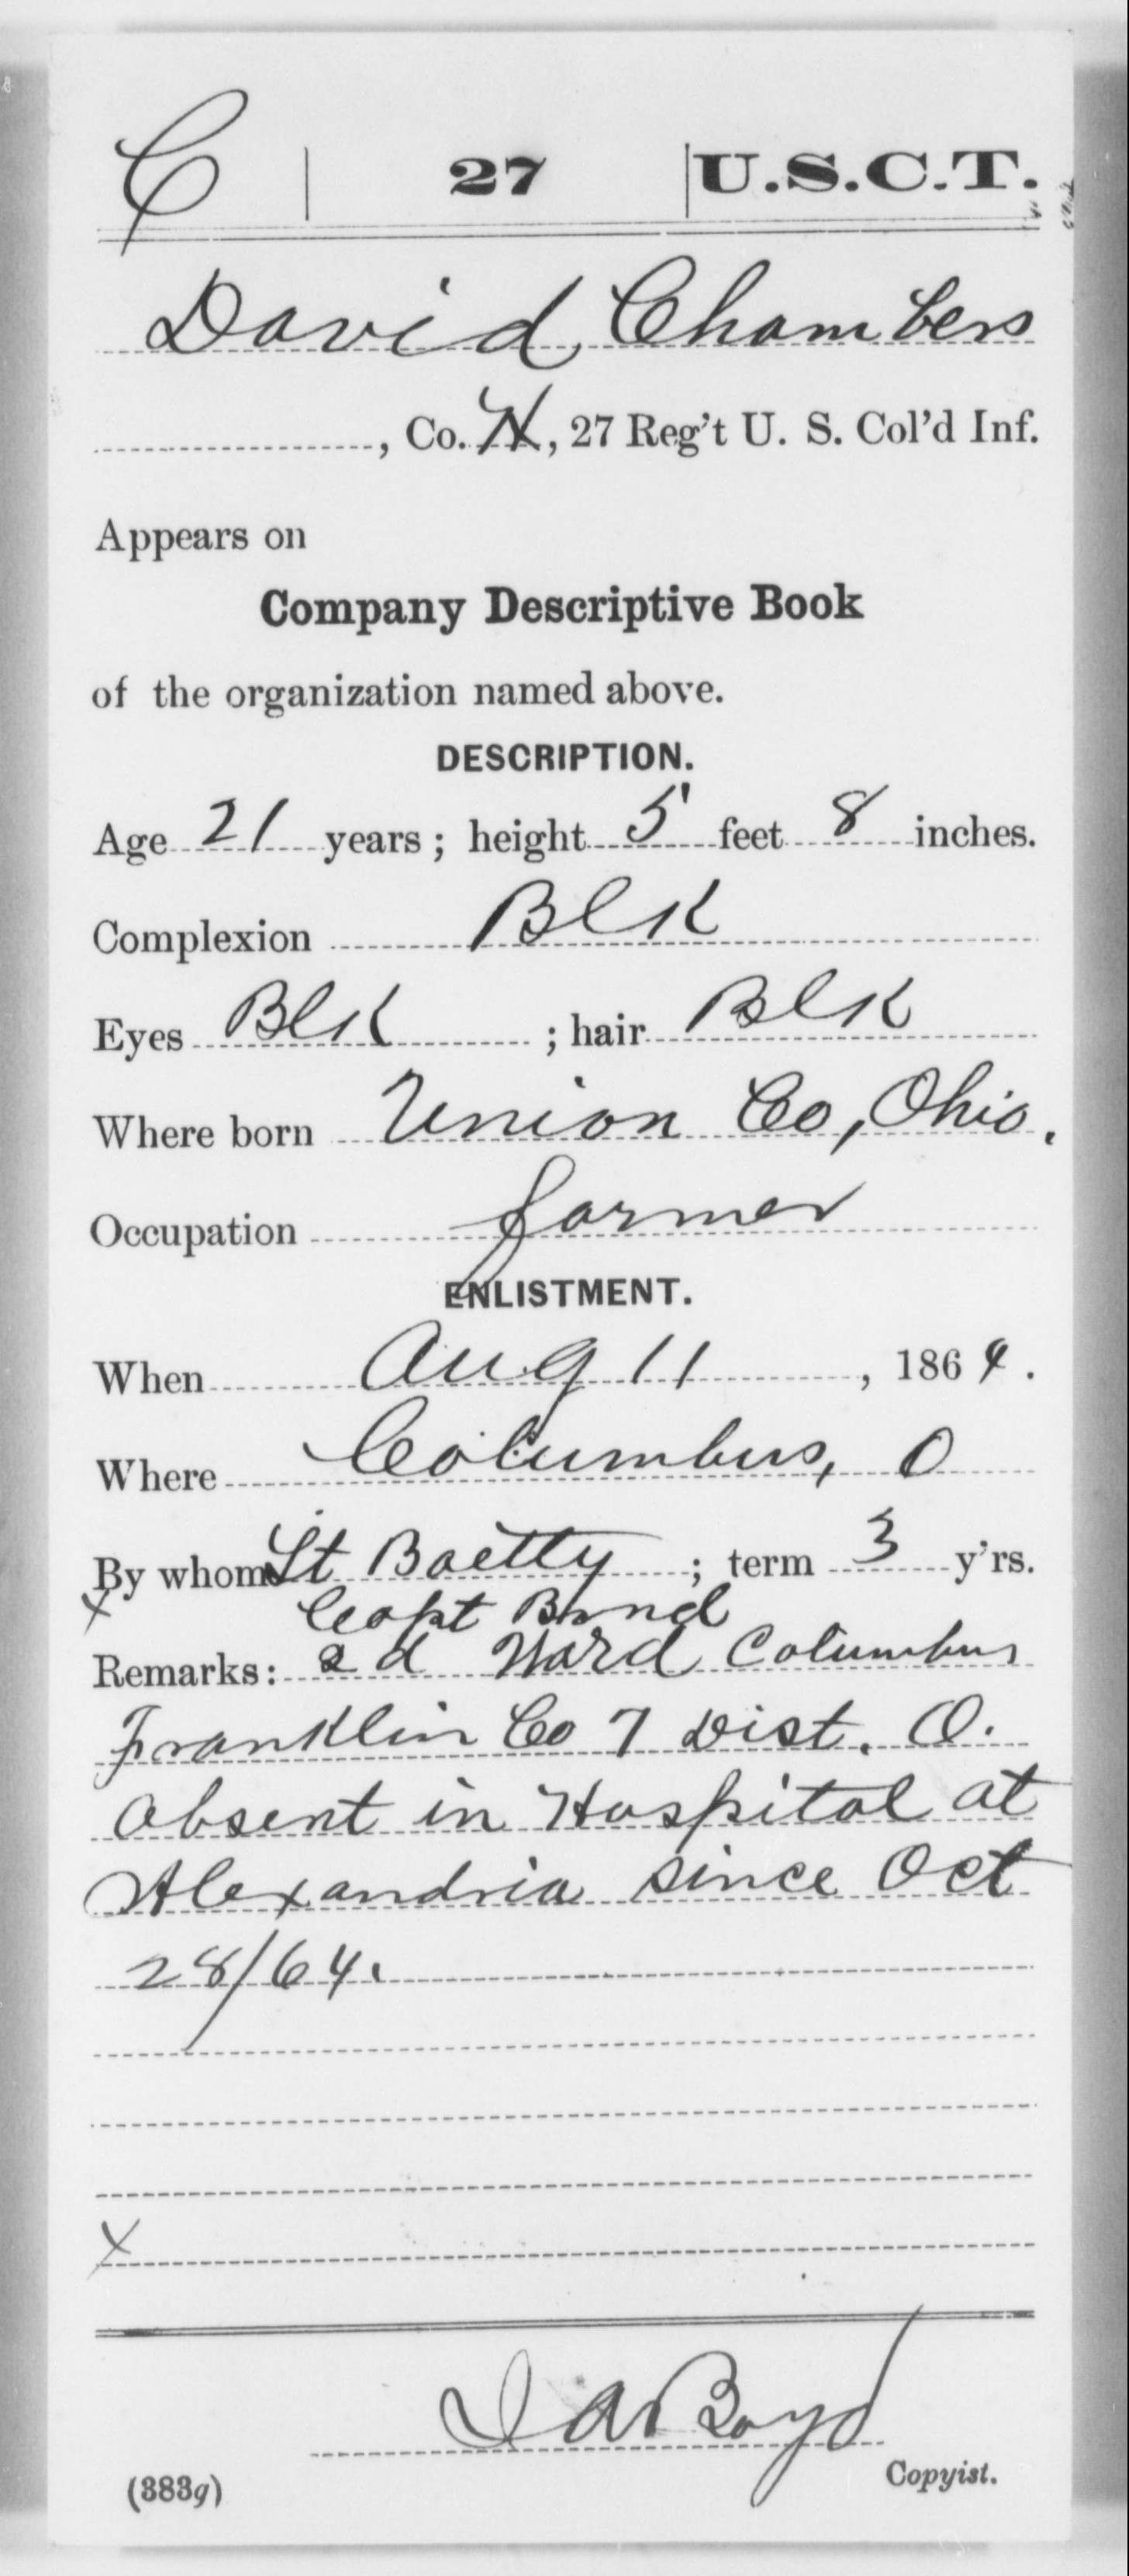 C | 27 | U.S.C.T.
David Chambers
, Co. H, 27 Reg't U. S. Col'd Inf.
Appears on
Company Descriptive Book
of the organization named above.
DESCRIPTION.
Age 21 years; height 5 feet 8 inches.
Complexion Blk
Eyes Blk ; hair Blk
Where born Union Co, Ohio.
Occupation farmer
ENLISTMENT.
When Aug 11, 1864.
Where Columbus, O
By whom Lt Baetty ; term 3 y'rs.
x Capt Bond
Remarks: 2d Ward Columbus
Franklin Co 7 Dist. O.
Absent in Hospital at
Alexandria since Oct
28/64.
x
Boyd
Copyist.
(383g)